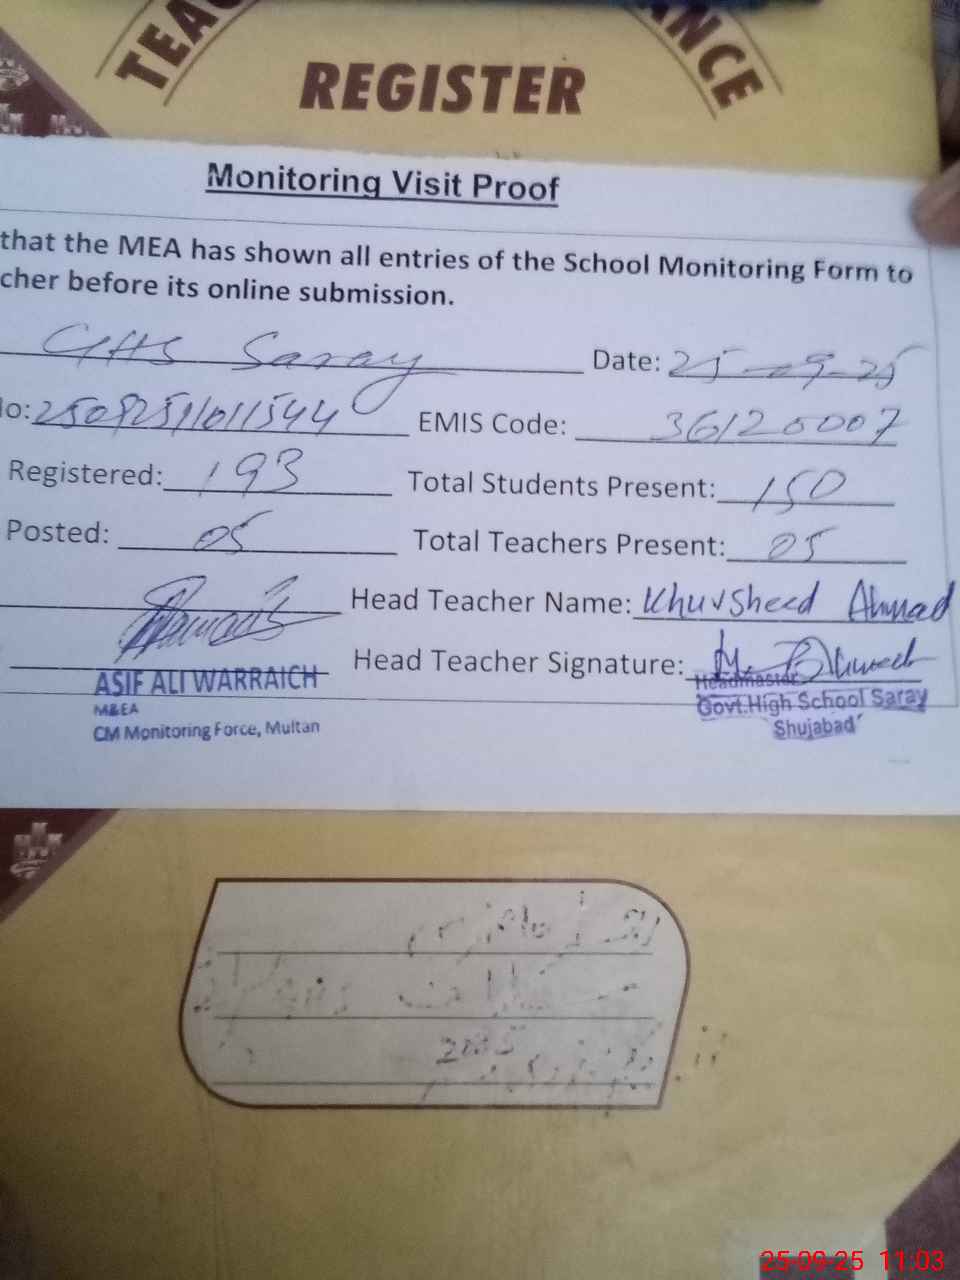 REGISTER
Monitoring Visit Proof
that the MEA has shown all entries of the School Monitoring Form to
cher before its online submission.
GHS Saray Date: 25-09-25
No: EMIS Code: 36120007
Registered: 193 Total Students Present: 150
Posted: 05 Total Teachers Present: 05
Head Teacher Name: Khursheed Ahmad
Head Teacher Signature:
ASIF ALI WARRAICH
M&EA
CM Monitoring Force, Multan
Headmaster
Govt.High School Saray
Shujabad
25-09-25 11:03